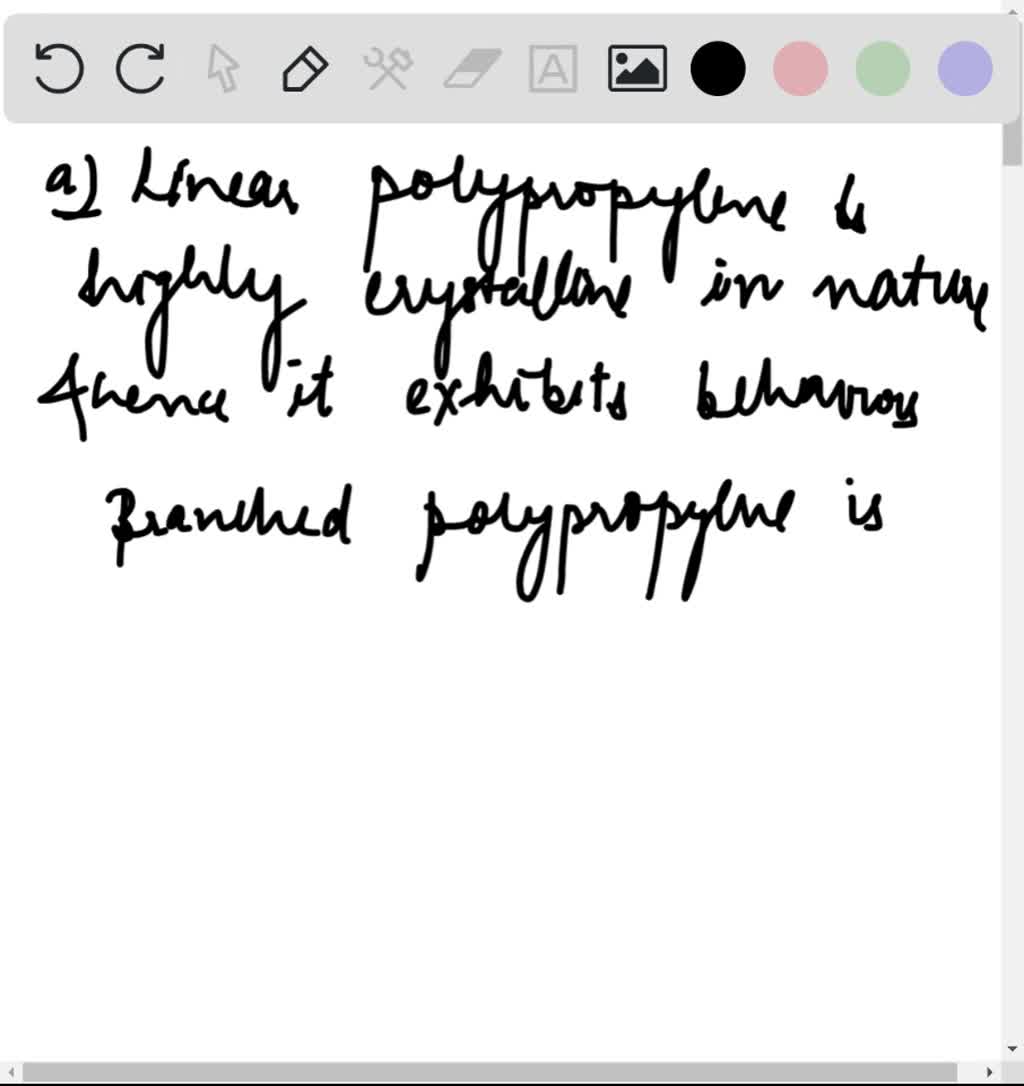 a) Linear polypropylene is
highly crystalline in nature
& hence it exhibits behaviour
Branched polypropylene is